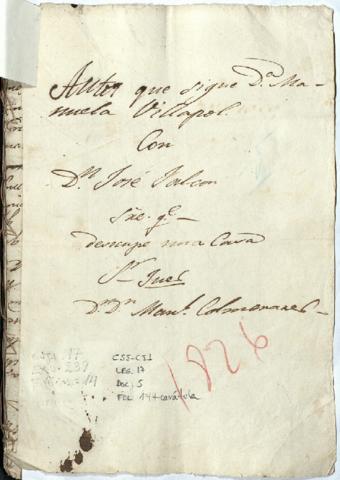 Autos que sigue D.ª Ma-
nuela Villapol.
Con
D.n José Falcon
Sre. q.e
desocupe una Casa
S.or Jues
D.r D.n Man.l Colmenares
1826
CSJ-CS1
LEG. 17
DOC. 5
FOL 14 + carátula